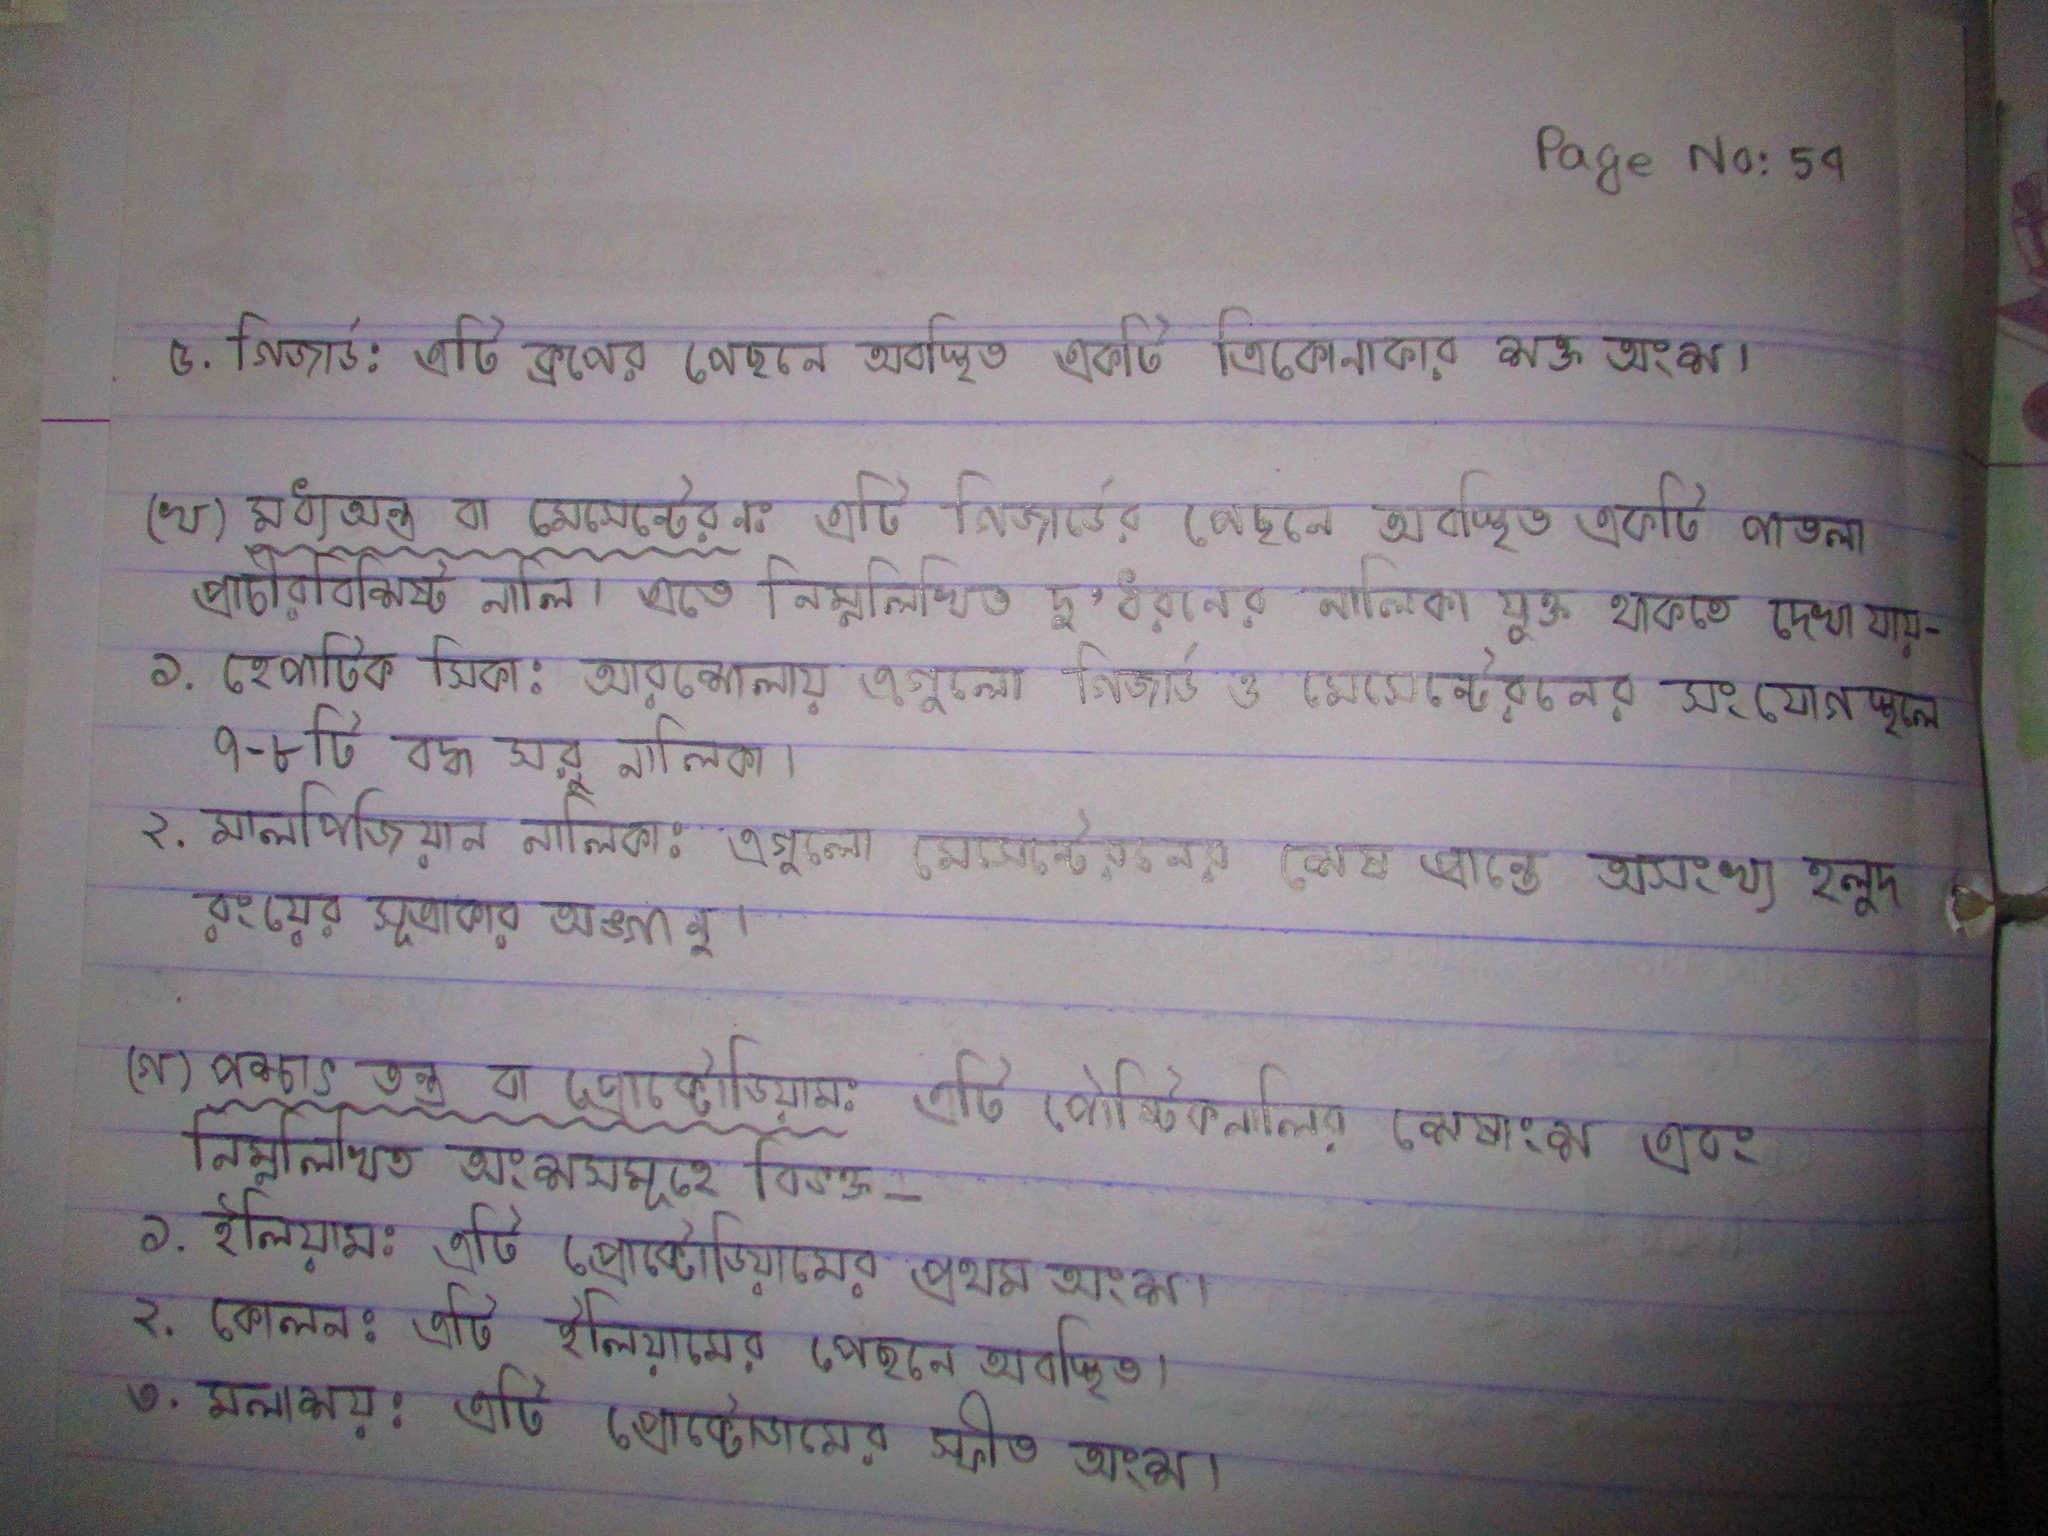 Page No: 59
৫. গিজার্ড: এটি ক্রপের পেছনে অবস্থিত একটি ত্রিকোনাকার শক্ত অংশ।
(খ) মধ্যঅন্ত্র বা মেসেন্টেরন: এটি গিজার্ডের পেছনে অবস্থিত একটি পাতলা
প্রাচীরবিশিষ্ট নালি। এতে নিম্নলিখিত দু'ধরনের নালিকা যুক্ত থাকতে দেখা যায়-
১. হেপাটিক সিকা: আরশোলায় এগুলো গিজার্ড ও মেসেন্টেরনের সংযোগস্থলে
৭-৮টি বদ্ধ সরু নালিকা।
২. মালপিজিয়ান নালিকা: এগুলো মেসেন্টেরনের শেষ প্রান্তে অসংখ্য হলুদ
রংয়ের সূত্রাকার অঙ্গাণু।
(গ) পশ্চাৎ অন্ত্র বা প্রোক্টোডিয়াম: এটি পৌষ্টিকনালির শেষাংশ এবং
নিম্নলিখিত অংশসমূহে বিভক্ত-
১. ইলিয়াম: এটি প্রোক্টোডিয়ামের প্রথম অংশ।
২. কোলন: এটি ইলিয়ামের পেছনে অবস্থিত।
৩. মলাশয়: এটি প্রোক্টোডামের স্ফীত অংশ।